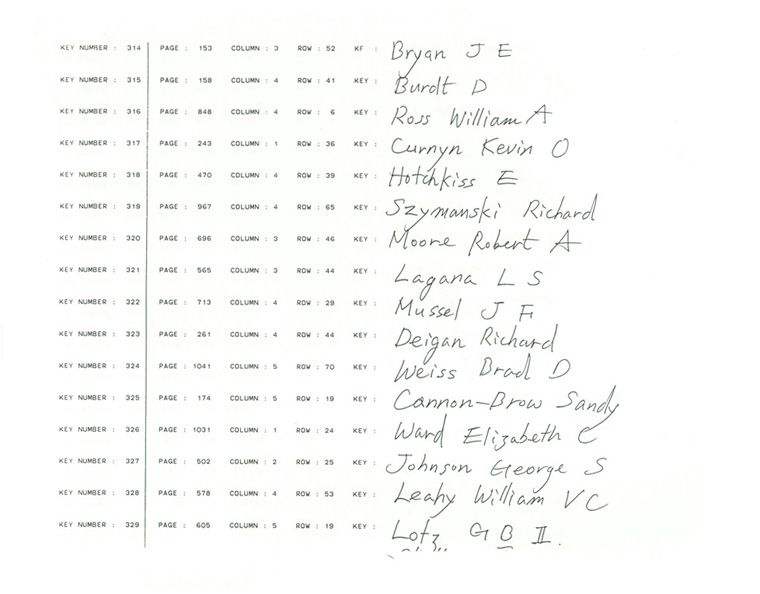 KEY NUMBER : 314 PAGE : 153 COLUMN : 3 ROW : 52 KF : Bryan J E
KEY NUMBER : 315 PAGE : 158 COLUMN : 4 ROW : 41 KEY : Burdt D
KEY NUMBER : 316 PAGE : 848 COLUMN : 4 ROW : 6 KEY : Ross William A
KEY NUMBER : 317 PAGE : 243 COLUMN : 1 ROW : 36 KEY : Curnyn Kevin O
KEY NUMBER : 318 PAGE : 470 COLUMN : 4 ROW : 39 KEY : Hotchkiss E
KEY NUMBER : 319 PAGE : 967 COLUMN : 4 ROW : 65 KEY : Szymanski Richard
KEY NUMBER : 320 PAGE : 696 COLUMN : 3 ROW : 46 KEY : Moore Robert A
KEY NUMBER : 321 PAGE : 565 COLUMN : 3 ROW : 44 KEY : Lagana L S
KEY NUMBER : 322 PAGE : 713 COLUMN : 4 ROW : 29 KEY : Mussel J F
KEY NUMBER : 323 PAGE : 261 COLUMN : 4 ROW : 44 KEY : Deigan Richard
KEY NUMBER : 324 PAGE : 1041 COLUMN : 5 ROW : 70 KEY : Weiss Brad D
KEY NUMBER : 325 PAGE : 174 COLUMN : 5 ROW : 19 KEY : Cannon-Brow Sandy
KEY NUMBER : 326 PAGE : 1031 COLUMN : 1 ROW : 24 KEY : Ward Elizabeth C
KEY NUMBER : 327 PAGE : 502 COLUMN : 2 ROW : 25 KEY : Johnson George S
KEY NUMBER : 328 PAGE : 578 COLUMN : 4 ROW : 53 KEY : Leahy William V C
KEY NUMBER : 329 PAGE : 605 COLUMN : 5 ROW : 19 KEY : Lotz G B II.